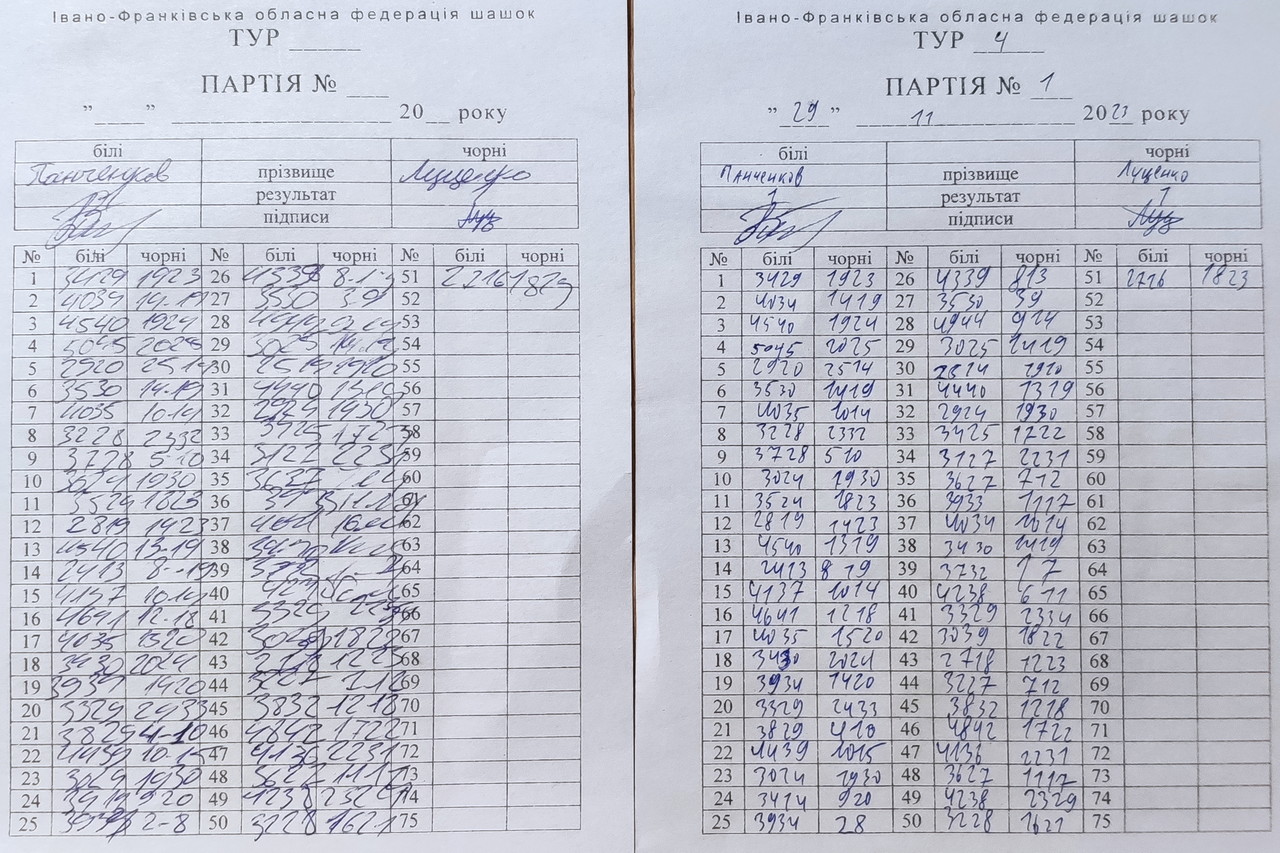 Івано-Франківська обласна федерація шашок
ТУР ______
ПАРТІЯ № ___
"____" ________________ 20__ року
білі чорні
Панченков прізвище Луценко
результат
підписи
№ білі чорні № білі чорні № білі чорні
1 3429 1923 26 4339 8-13 51 2716 1823
2 4034 14-19 27 3530 3-9 52
3 4540 1924 28 4944 53
4 5045 2025 29 3025 14-19 54
5 2920 25 14 30 2514 1920 55
6 3530 14-19 31 4440 1319 56
7 4035 10-14 32 2924 1930 57
8 3228 2332 33 3425 1722 58
9 3728 5-10 34 3127 2231 59
10 3024 1930 35 3627 60
11 3524 1823 36 61
12 2819 1423 37 62
13 4540 13-19 38 63
14 2413 8-19 39 3732 64
15 4137 10-14 40 65
16 4641 12-18 41 3329 66
17 4035 1520 42 3039 1822 67
18 3430 2024 43 2718 1223 68
19 3934 1420 44 3227 69
20 3329 2433 45 3832 1218 70
21 3829 4-10 46 4842 1722 71
22 4439 10-15 47 4136 2231 72
23 3024 1930 48 3627 73
24 920 49 4238 2329 74
25 2-8 50 3228 1621 75
Івано-Франківська обласна федерація шашок
ТУР 4
ПАРТІЯ № 1
" 29 " 11 2023 року
білі чорні
Панченков прізвище Луценко
1 результат 1
підписи
№ білі чорні № білі чорні № білі чорні
1 3429 1923 26 4339 813 51 2716 1823
2 4034 1419 27 3530 39 52
3 4540 1924 28 4944 914 53
4 5045 2025 29 3025 1419 54
5 2920 2514 30 2514 1920 55
6 3530 1419 31 4440 1319 56
7 4035 1014 32 2924 1930 57
8 3228 2332 33 3425 1722 58
9 3728 510 34 3127 2231 59
10 3024 1930 35 3627 712 60
11 3524 1823 36 3933 1117 61
12 2819 1423 37 4034 1014 62
13 4540 1319 38 3430 1419 63
14 2413 8 19 39 3732 17 64
15 4137 1014 40 4238 611 65
16 4641 1218 41 3329 2334 66
17 4035 1520 42 3039 1822 67
18 3430 2024 43 2718 1223 68
19 3934 1420 44 3227 712 69
20 3329 2433 45 3832 1218 70
21 3829 410 46 4842 1722 71
22 4439 1015 47 4136 2231 72
23 3024 1930 48 3627 1117 73
24 3414 920 49 4238 2329 74
25 3934 28 50 3228 1621 75